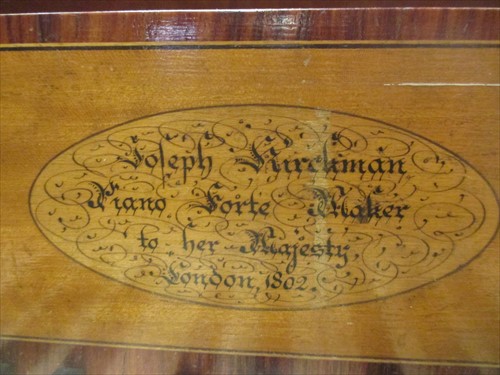 Joseph Kirckman
Piano Forte Maker
to her Majesty,
London, 1802.